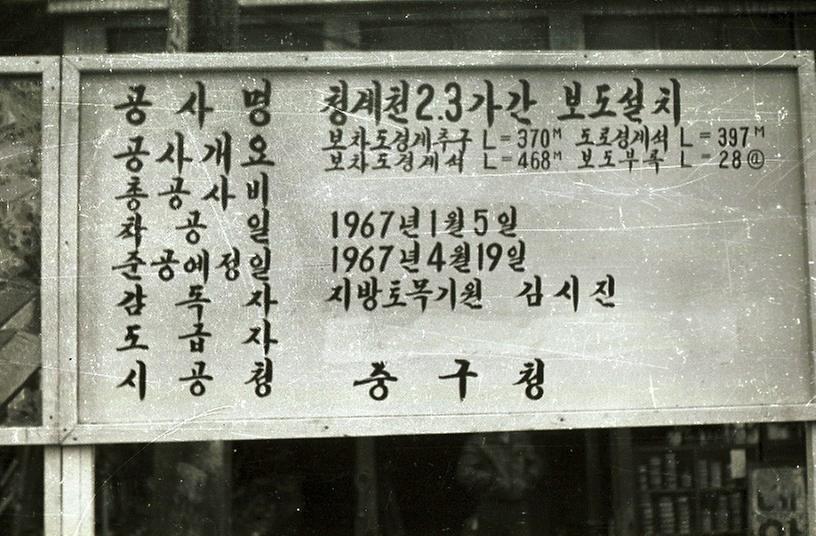 공사명 청계천2.3가간 보도설치
공사개요 보차도경계축구 L=370M 도로경계석 L=397M
보차도경계석 L=468M 보도부록 L=28@
총공사비
착공일 1967년1월5일
준공예정일 1967년4월19일
감독자 지방토목기원 김시진
도급자
시공청 중구청